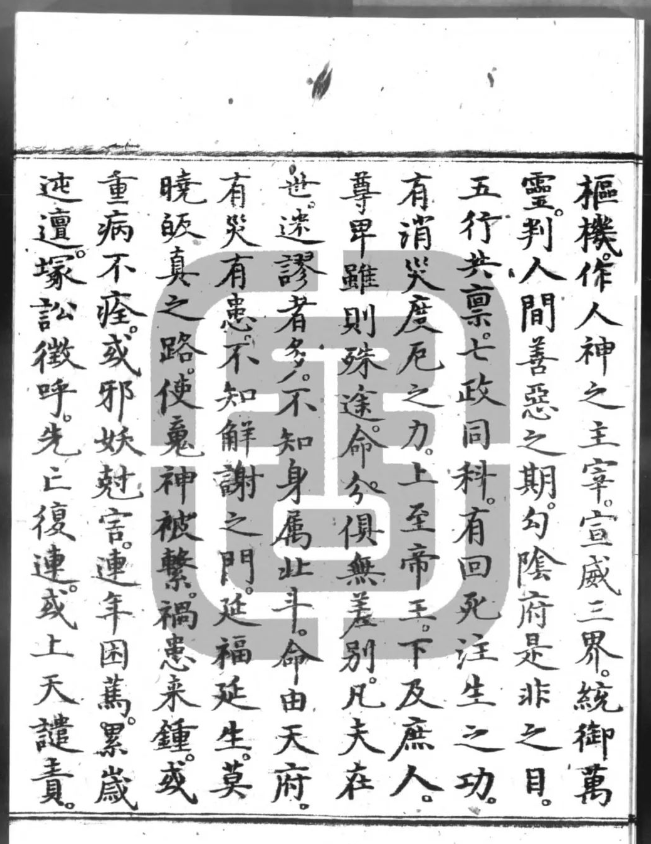 樞機。作人神之主宰。宣威三界。統御萬
靈。判人間善惡之期。勾陰府是非之目。
五行共禀。七政同科。有回死注生之功。
有消災度厄之力。上至帝王。下及庶人。
尊卑雖則殊途。命分。俱無差別。凡夫在
世。迷謬者多。不知身属北斗。命由天府。
有災有患。不知解謝之門。延福延生。莫
曉皈真之路。使䰟神被繫。禍患来鍾。或
重病不痊。或邪妖尅害。連年困篤。累歳
迍邅。塚訟徵呼。先亡復連。或上天譴責。